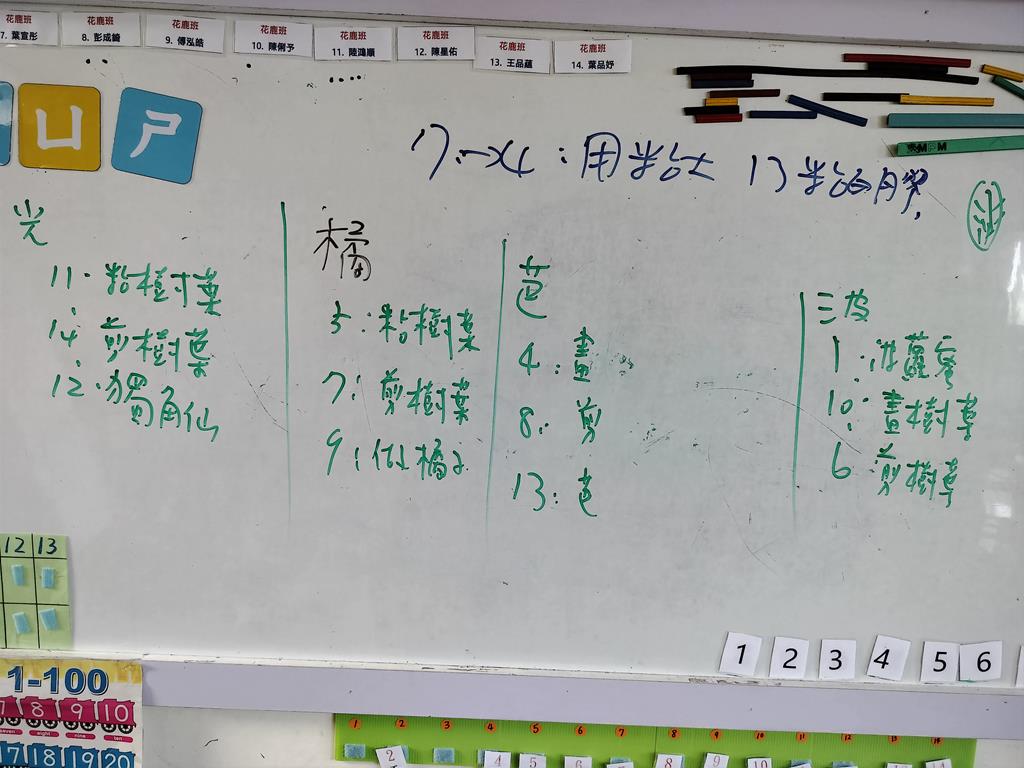 花鹿班
7. 葉宣彤
花鹿班
8. 彭成錡
花鹿班
9. 傅泓皓
花鹿班
10. 陳俐予
花鹿班
11. 陸鴻順
花鹿班
12. 陳星佑
花鹿班
13. 王品蘊
花鹿班
14. 葉品妤
ㄩ
ㄕ
MPM
光
11. 粘樹葉
14. 剪樹葉
12. 獨角仙
橘
5: 粘樹葉
7: 剪樹葉
9: 做橘子
芭
4: 畫
8: 剪
13: 芭
三坡
10: 畫樹葉
6: 剪樹葉
12 13
1 2 3 4 5 6
1-100
7 8 9 10
seven eight nine ten
17 18 19 20
1 2 3 4 5 6 7 8 9 10 11 12 13 14
2 4 5 6 7 8 9 10